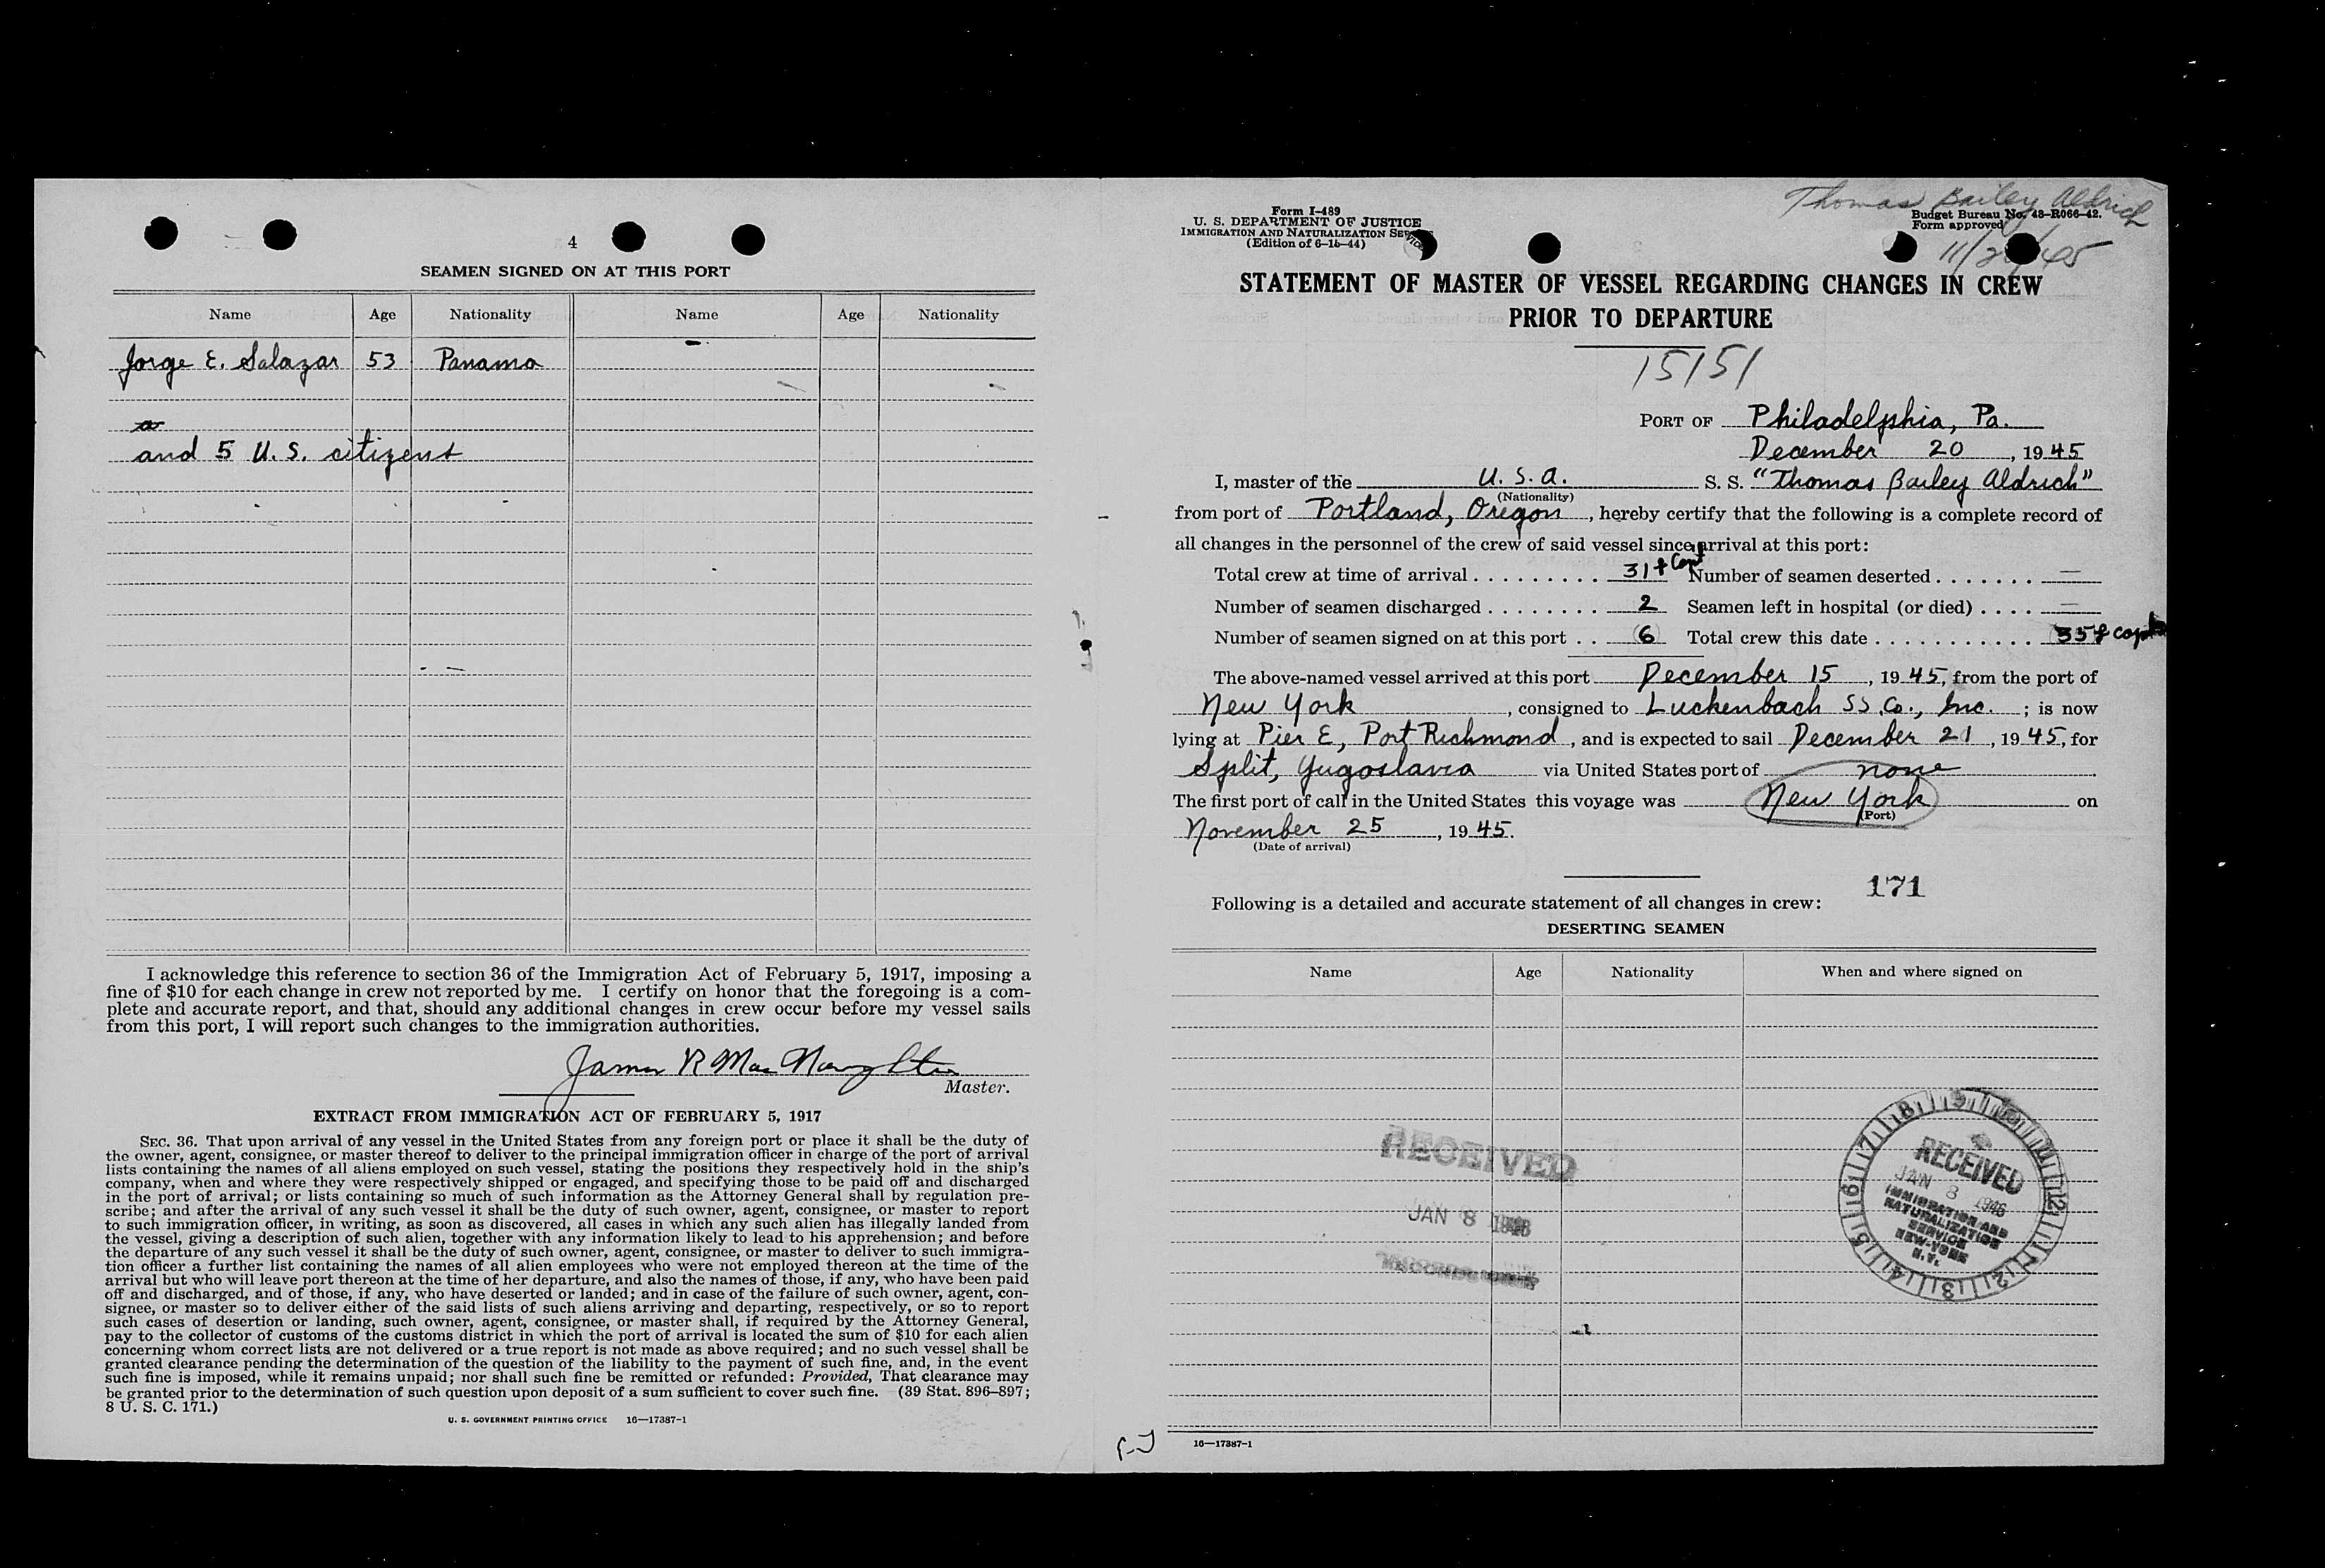 4
SEAMEN SIGNED ON AT THIS PORT
Name Age Nationality Name Age Nationality
Jorge E. Salazar 53 Panama
and 5 U. S. citizens
I acknowledge this reference to section 36 of the Immigration Act of February 5, 1917, imposing a
fine of $10 for each change in crew not reported by me. I certify on honor that the foregoing is a com-
plete and accurate report, and that, should any additional changes in crew occur before my vessel sails
from this port, I will report such changes to the immigration authorities.
James R MacNaughton
Master.
EXTRACT FROM IMMIGRATION ACT OF FEBRUARY 5, 1917
SEC. 36. That upon arrival of any vessel in the United States from any foreign port or place it shall be the duty of
the owner, agent, consignee, or master thereof to deliver to the principal immigration officer in charge of the port of arrival
lists containing the names of all aliens employed on such vessel, stating the positions they respectively hold in the ship's
company, when and where they were respectively shipped or engaged, and specifying those to be paid off and discharged
in the port of arrival; or lists containing so much of such information as the Attorney General shall by regulation pre-
scribe; and after the arrival of any such vessel it shall be the duty of such owner, agent, consignee, or master to report
to such immigration officer, in writing, as soon as discovered, all cases in which any such alien has illegally landed from
the vessel, giving a description of such alien, together with any information likely to lead to his apprehension; and before
the departure of any such vessel it shall be the duty of such owner, agent, consignee, or master to deliver to such immigra-
tion officer a further list containing the names of all alien employees who were not employed thereon at the time of the
arrival but who will leave port thereon at the time of her departure, and also the names of those, if any, who have been paid
off and discharged, and of those, if any, who have deserted or landed; and in case of the failure of such owner, agent, con-
signee, or master so to deliver either of the said lists of such aliens arriving and departing, respectively, or so to report
such cases of desertion or landing, such owner, agent, consignee, or master shall, if required by the Attorney General,
pay to the collector of customs of the customs district in which the port of arrival is located the sum of $10 for each alien
concerning whom correct lists are not delivered or a true report is not made as above required; and no such vessel shall be
granted clearance pending the determination of the question of the liability to the payment of such fine, and, in the event
such fine is imposed, while it remains unpaid; nor shall such fine be remitted or refunded: Provided, That clearance may
be granted prior to the determination of such question upon deposit of a sum sufficient to cover such fine. (39 Stat. 896–897;
8 U. S. C. 171.)
U. S. GOVERNMENT PRINTING OFFICE 16—17387-1
Thomas Bailey Aldrich
Form I-489
U. S. DEPARTMENT OF JUSTICE
IMMIGRATION AND NATURALIZATION SERVICE
(Edition of 6-15-44)
Budget Bureau No. 43-R066-42.
Form approved
STATEMENT OF MASTER OF VESSEL REGARDING CHANGES IN CREW
PRIOR TO DEPARTURE
15151
PORT OF Philadelphia, Pa.
December 20, 1945
I, master of the U. S. A. S. S. "Thomas Bailey Aldrich"
(Nationality)
from port of Portland, Oregon, hereby certify that the following is a complete record of
all changes in the personnel of the crew of said vessel since arrival at this port:
Total crew at time of arrival 31 + Capt Number of seamen deserted —
Number of seamen discharged 2 Seamen left in hospital (or died) —
Number of seamen signed on at this port 6 Total crew this date 35 & Capt
The above-named vessel arrived at this port December 15, 1945, from the port of
New York, consigned to Luckenbach SS. Co., Inc.; is now
lying at Pier E, Port Richmond, and is expected to sail December 21, 1945, for
Split, Yugoslavia via United States port of none
The first port of call in the United States this voyage was New York on
(Port)
November 25, 1945.
(Date of arrival)
171
Following is a detailed and accurate statement of all changes in crew:
DESERTING SEAMEN
Name Age Nationality When and where signed on
RECEIVED
JAN 8 1946
RECEIVED
JAN 8 1946
IMMIGRATION AND
NATURALIZATION
SERVICE
NEW YORK
N.Y.
16—17387-1